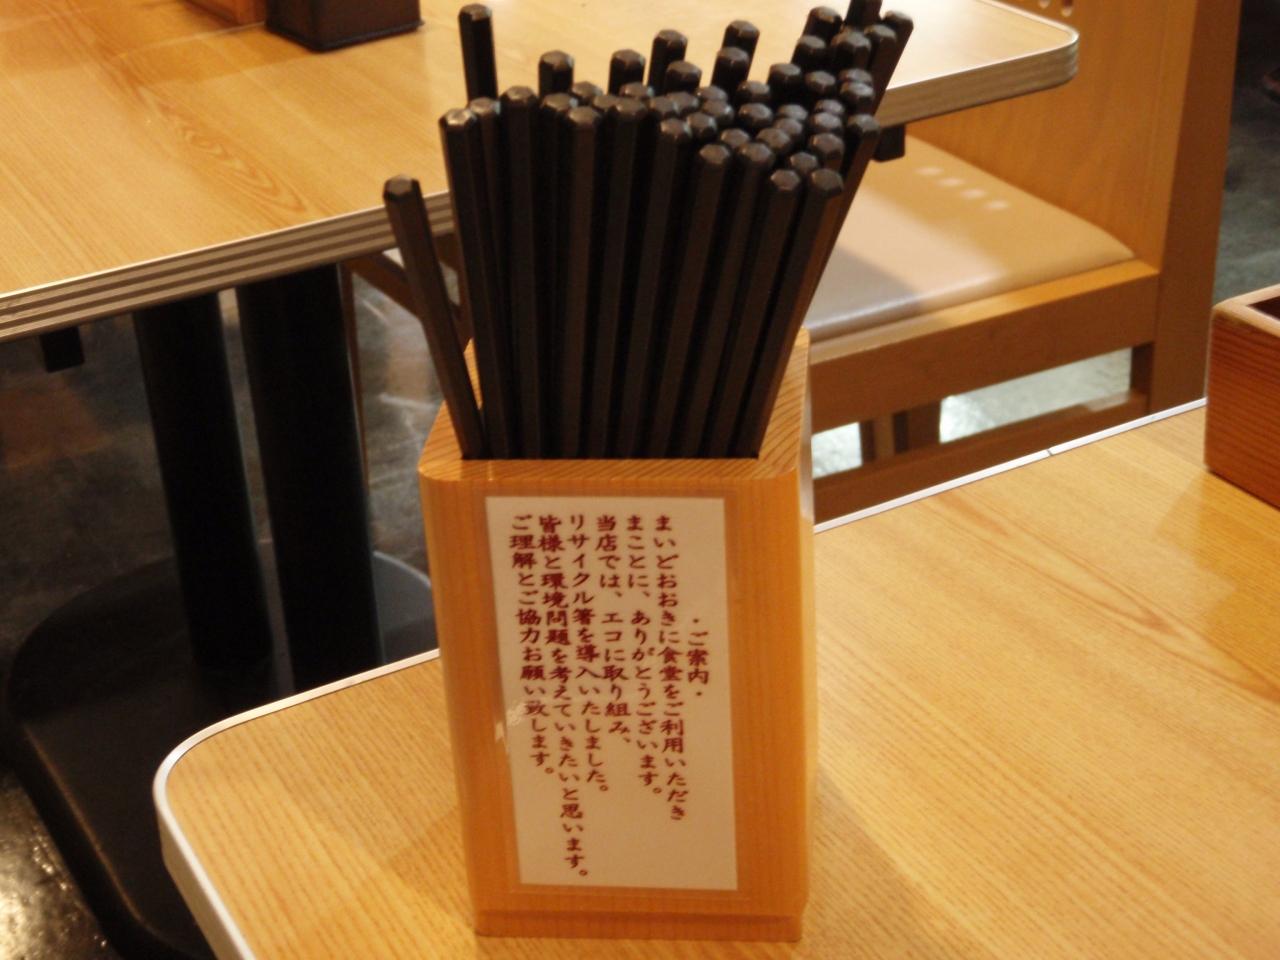 ・ご案内・
まいどおおきに食堂をご利用いただき
まことに、ありがとうございます。
当店では、エコに取り組み、
リサイクル箸を導入いたしました。
皆様と環境問題を考えていきたいと思います。
ご理解とご協力お願い致します。